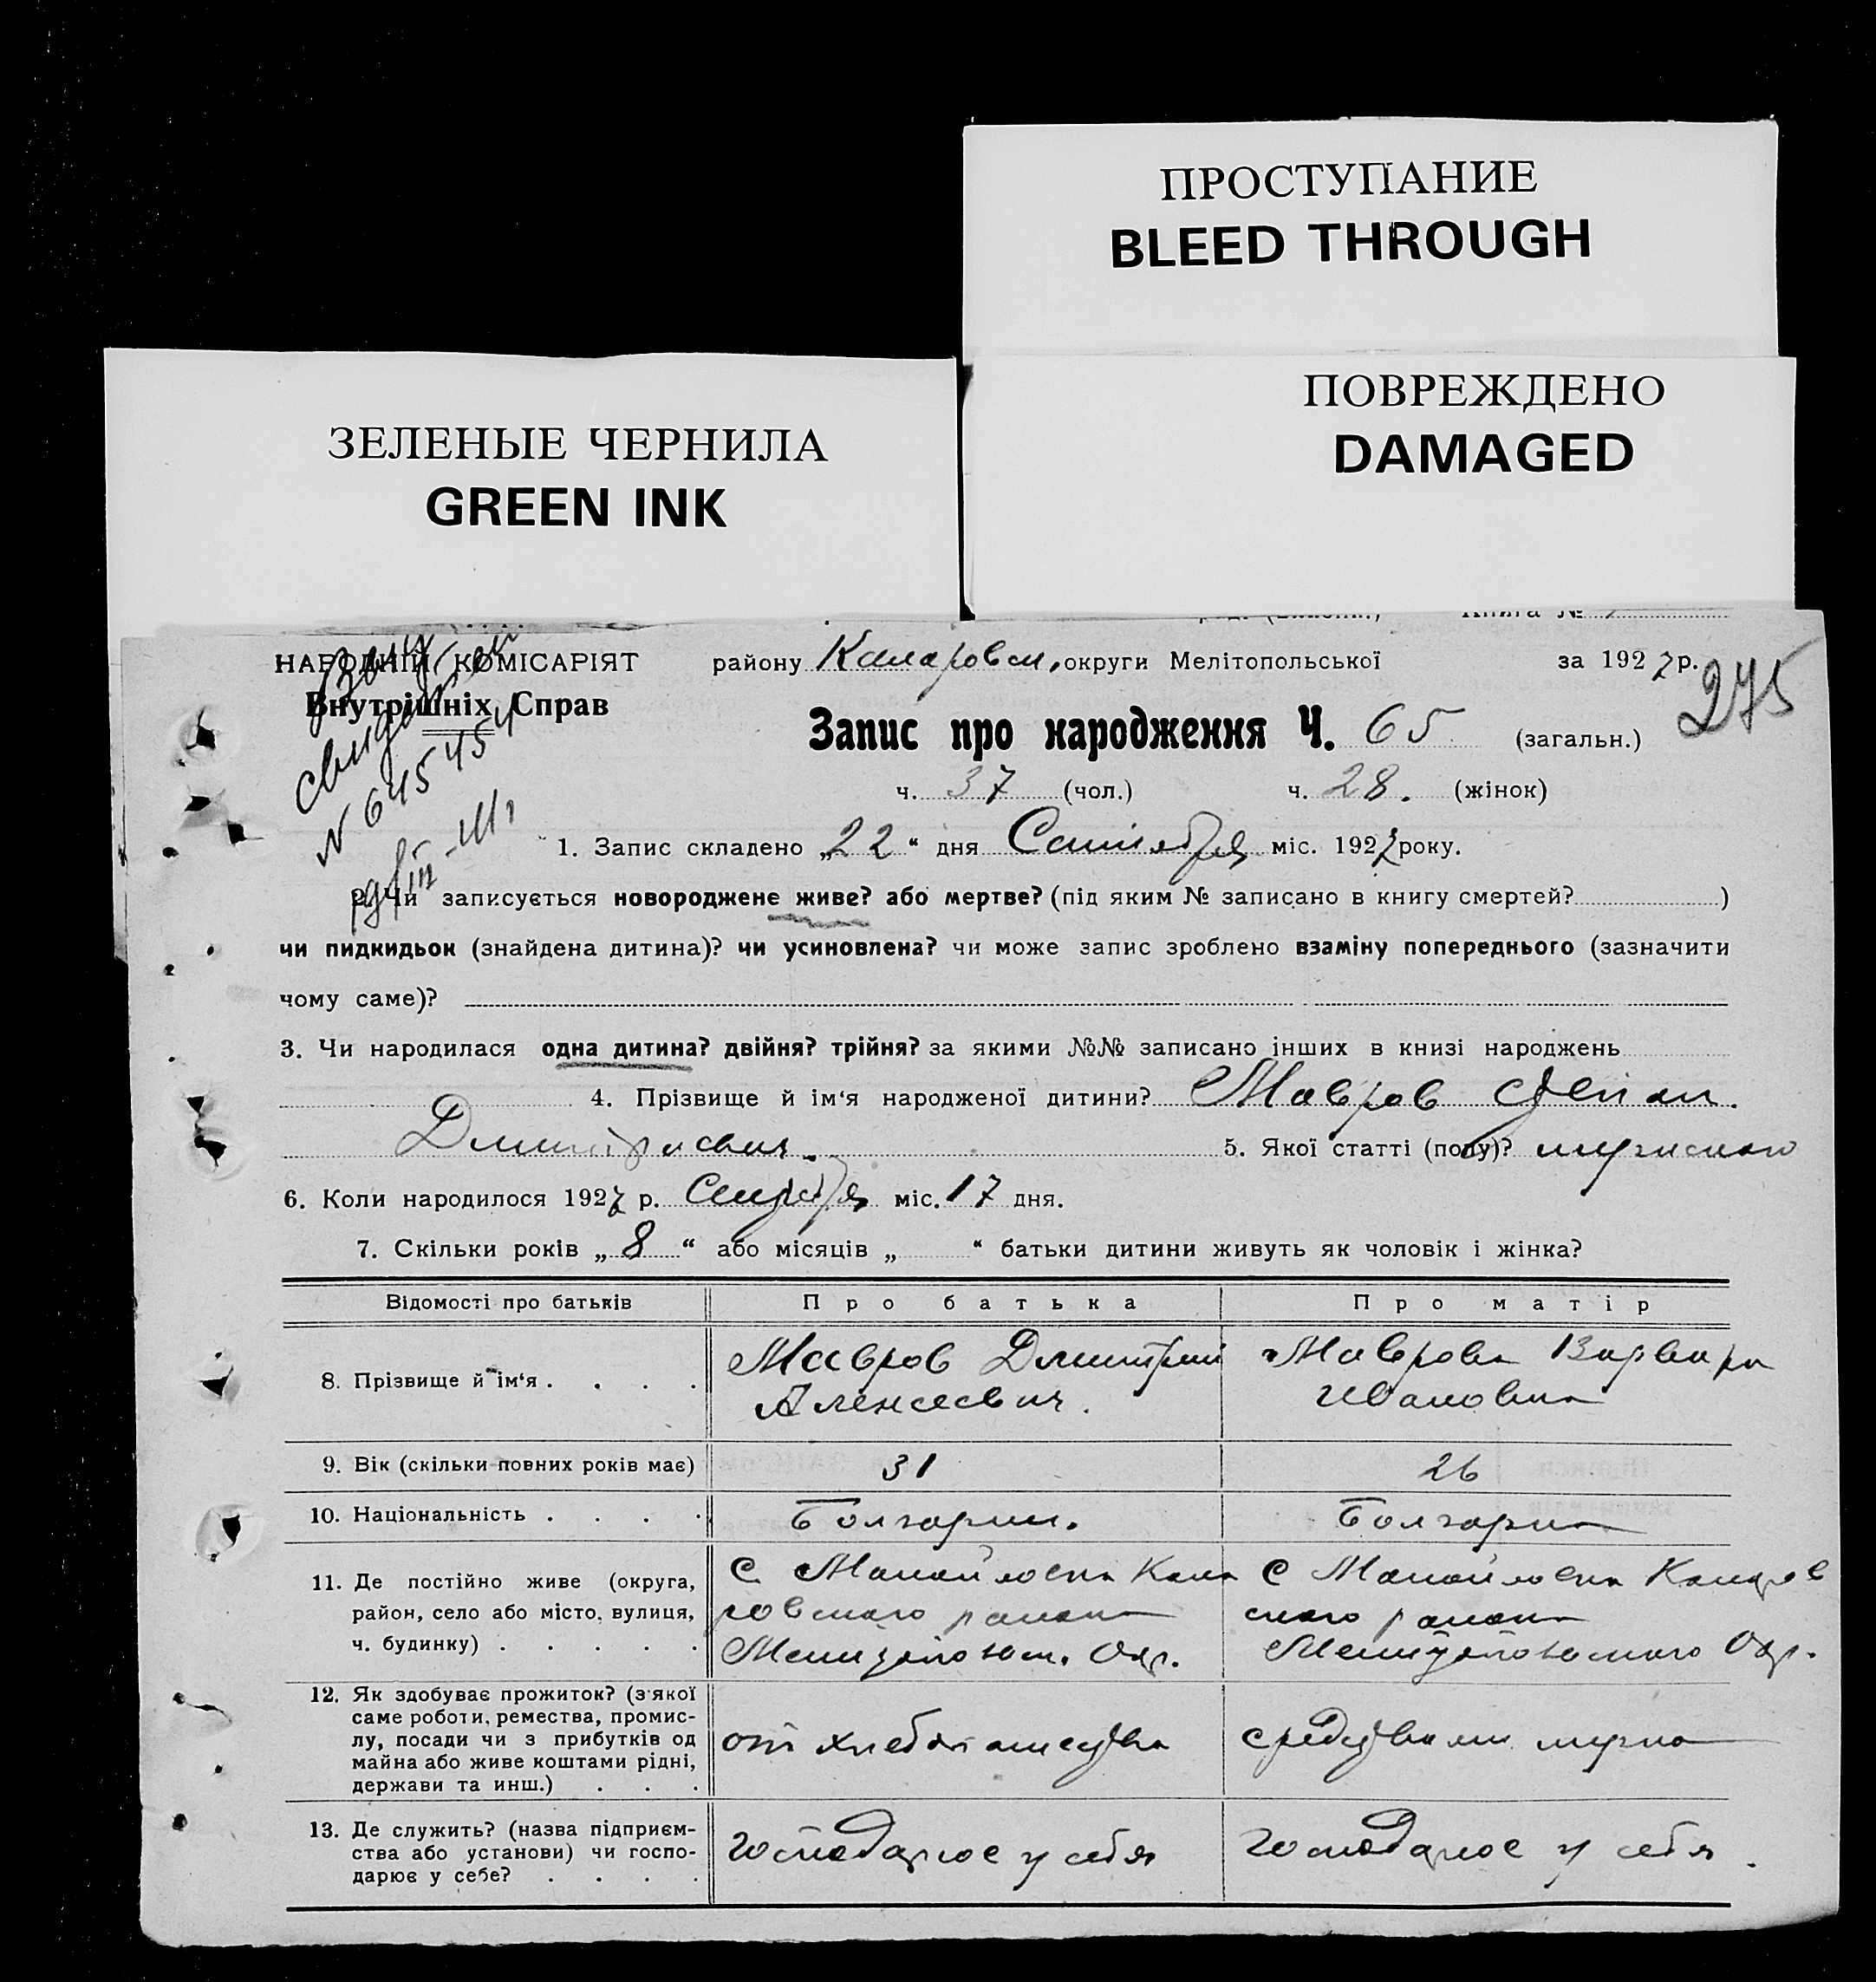 ПРОСТУПАНИЕ
BLEED THROUGH
ПОВРЕЖДЕНО
DAMAGED
ЗЕЛЕНЫЕ ЧЕРНИЛА
GREEN INK
Книга №
НАРОДНІЙ КОМІСАРІЯТ
Внутрішніх Справ
району Камаровск. округи Мелітопольської за 1927 р.
275
Запис про народження Ч. 65 (загальн.)
ч. 37 (чол.) ч. 28. (жінок)
N 645454
1. Запис складено „22“ дня Сентября міс. 1927 року.
2. Чи записується новороджене живе? або мертве? (під яким № записано в книгу смертей? )
чи пидкидьок (знайдена дитина)? чи усиновлена? чи може запис зроблено взаміну попереднього (зазначити
чому саме)?
3. Чи народилася одна дитина? двійня? трійня? за якими №№ записано інших в книзі народжень
4. Прізвище й ім‘я народженої дитини? Мавров Степан.
Дмитриевич. 5. Якої статті (полу)? мужского
6. Коли народилося 1927 р. Сентября міс. 17 дня.
7. Скільки років „8“ або місяців „ “ батьки дитини живуть як чоловік і жінка?
Відомості про батьків Про батька Про матір
8. Прізвище й ім‘я . . . . Мавров Дмитрий Алексеевич. Маврова Варвара Ивановна
9. Вік (скільки повних років має) 31 26
10. Національність . . . . Болгарин. Болгарка
11. Де постійно живе (округа,
район, село або місто, вулиця,
ч. будинку) . . . . .
С Манойловка Кама
ровского района
Мелитопольск. Окр.
С Манойловка Камаров
ского района
Мелитопольского Окр.
12. Як здобуває прожиток? (з якої
саме роботи, ремества, промис-
лу, посади чи з прибутків од
майна або живе коштами рідні,
держави та инш.) . . .
от хлебопашества
средствами мужа
13. Де служить? (назва підприєм-
ства або установи) чи госпо-
дарює у себе? . . . .
господарює у себя
господарює у себя.